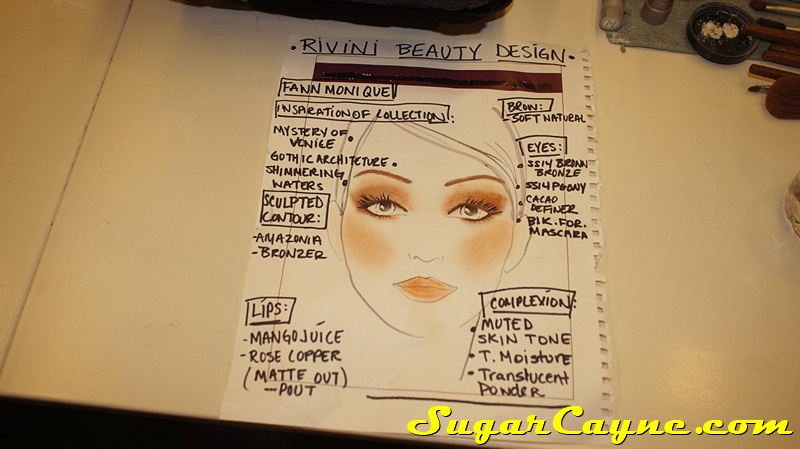 • RIVINI BEAUTY DESIGN •
FANN MONIQUE
INSPIRATION OF COLLECTION:
MYSTERY OF
VENICE
GOTHIC ARCHITETURE
SHIMMERING
WATERS
SCULPTED
CONTOUR:
- AMAZONIA
- BRONZER
LIPS:
- MANGO JUICE
- ROSE COPPER
(MATTE OUT)
- POUT
BROW:
- SOFT NATURAL
EYES:
• SS14 BROWN
BRONZE
• SS14 PGONY
• CACAO
DEFINER
• BLK. FOR.
MASCARA
COMPLEXION:
• MUTED
SKIN TONE
• T. MOISTURE
• Translucent
POWDER
SugarCayne.com